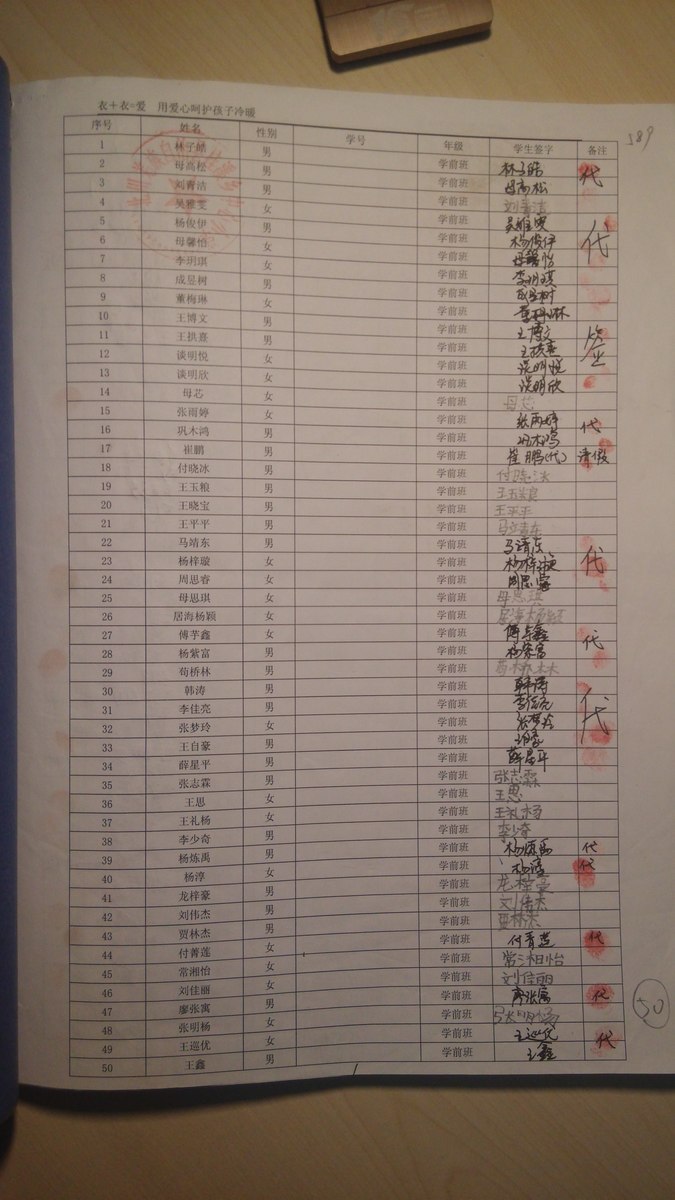 衣+衣=爱 用爱心呵护孩子冷暖
589
序号 姓名 性别 学号 年级 学生签字 备注
1 林子皓 男 学前班 林子皓 代
2 母高松 男 学前班 母高松
3 刘青洁 男 学前班 刘青洁
4 吴雅雯 女 学前班 吴雅雯 代
5 杨俊伊 男 学前班 杨俊伊
6 母馨怡 女 学前班 母馨怡
7 李玥琪 女 学前班 李玥琪
8 成昱树 男 学前班 成昱树
9 董梅琳 女 学前班 董梅琳
10 王博文 男 学前班 王博文 签
11 王拱熹 男 学前班 王拱熹
12 谈明悦 女 学前班 谈明悦
13 谈明欣 女 学前班 谈明欣
14 母芯 女 学前班 母芯
15 张雨婷 女 学前班 张雨婷 代
16 巩木鸿 男 学前班 巩木鸿
17 崔鹏 男 学前班 崔鹏(代) 请假
18 付晓冰 男 学前班 付晓冰
19 王玉粮 男 学前班 王玉粮
20 王晓宝 男 学前班 王平平
21 王平平 男 学前班 马立青车
22 马靖东 男 学前班 马靖东 代
23 杨梓璇 女 学前班 杨梓璇
24 周思睿 女 学前班 周思睿
25 母思琪 女 学前班 母思琪
26 居海杨颖 女 学前班 居海杨颖
27 傅芊鑫 女 学前班 傅芊鑫 代
28 杨紫富 男 学前班 杨紫富
29 荀桥林 男 学前班
30 韩涛 男 学前班 韩涛 代
31 李佳亮 男 学前班 李佳亮
32 张梦玲 女 学前班 张梦玲
33 王自豪 男 学前班 王自豪
34 薛星平 男 学前班 薛星平
35 张志霖 男 学前班 张志霖
36 王思 女 学前班 王思
37 王礼杨 女 学前班 王礼杨
38 李少奇 男 学前班 李少奇
39 杨炼禹 男 学前班 杨炼禹 代
40 杨淳 女 学前班 杨淳 代
41 龙梓豪 男 学前班 龙梓豪
42 刘伟杰 男 学前班 刘伟杰
43 贾林杰 男 学前班 贾林杰
44 付菁莲 女 学前班 付菁莲 代
45 常湘怡 女 学前班 常湘怡
46 刘佳丽 女 学前班 刘佳丽
47 廖张寓 男 学前班 廖张寓 代
48 张明杨 女 学前班 张明杨
49 王巡优 女 学前班 王巡优 代
50 王鑫 男 学前班 王鑫
50